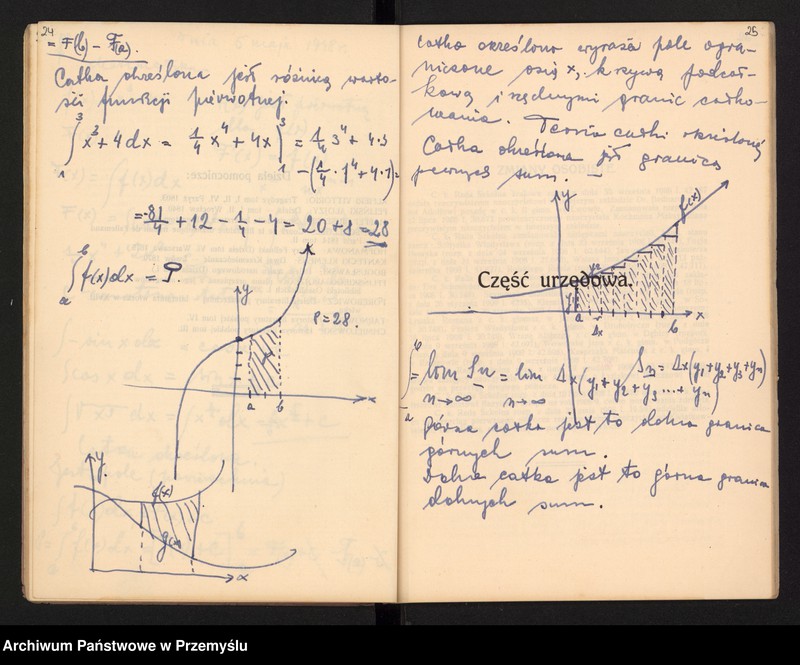 24
= F(b) - F(a).
Całka określona jest różnicą warto-
ści funkcji pierwotnej.
∫₁³ x³ + 4 dx = 1/4 x⁴ + 4x |₁³ = 1/4 · 3⁴ + 4·3
- (1/4 · 1⁴ + 4·1) =
= 81/4 + 12 - 1/4 - 4 = 20 + 8 = 28
∫ₐᵇ f(x)dx = P.
y
P = 28.
P
a b x
y
f(x)
g(x)
x
25
Całka określona wyraża pole ogra-
niczone osią x, krzywą podcał-
kową i rzędnymi granic całko-
wania. Teoria całki określonej
Całka określona jest granicą
pewnych sum.
y
f(x)
Część urzędowa.
a Δx b x
∫ₐᵇ = lim Sn = lim Δx (y₁ + y₂ + y₃ ... + yn)
n→∞ n→∞
Sn = Δx (y₁ + y₂ + y₃ + yn)
górna całka jest to dolna granica
górnych sum.
Dolna całka jest to górna granica
dolnych sum.
Archiwum Państwowe w Przemyślu